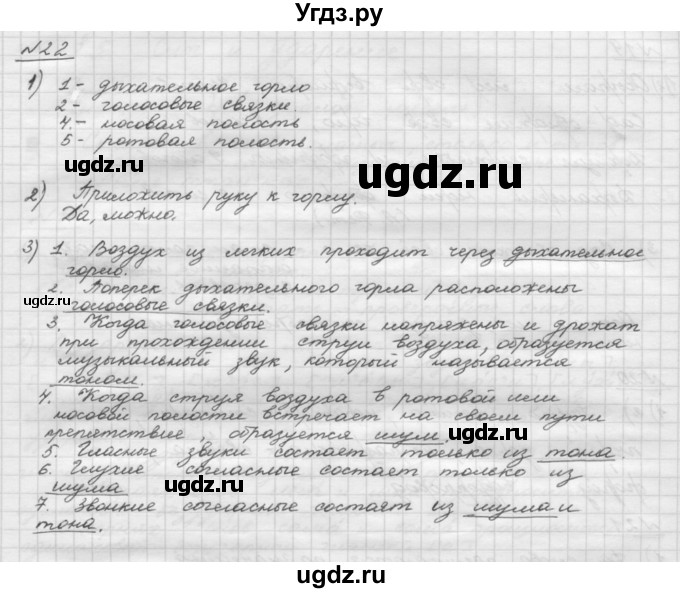 Угдз.ру
№22
1) 1 - дыхательное горло
2 - голосовые связки.
4. - носовая полость
5 - ротовая полость.
ugdz.ru
ugdz.ru
2) Приложить руку к горлу.
Да, можно.
3) 1. Воздух из легких проходит через дыхательное
горло.
ugdz.ru
2. Поперек дыхательного горла расположены
голосовые связки.
ugdz.ru
3. Когда голосовые связки напряжены и дрожат
при прохождении струи воздуха, образуется
музыкальный звук, который называется
тоном.
ugdz.ru
4. Когда струя воздуха в ротовой или
носовой полости встречает на своем пути
препятствие, образуется шум.
ugdz.ru
5. Гласные звуки состоят только из тона.
6. Глухие согласные состоят только из
шума
ugdz.ru
7. Звонкие согласные состоят из шума и
тона.
ugdz.ru
ugdz.ru